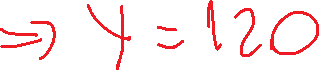 ⇒ y = 120